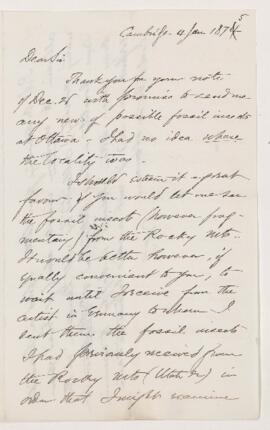 Cambridge. 4 Jan 1875
Dear Sir
Thank you for your note
of Dec. 26 with promise to send me
any news of possible fossil insects
at Ottawa - I had no idea where
the locality was.
I should esteem it a great
favour if you would let me see
the fossil insects (however frag-
mentary) from the Rocky Mts.
It would be better however, if
equally convenient to you, to
wait until I receive from the
artist in Germany to whom I
sent them the fossil insects
I had previously received from
the Rocky Mts (Utah &c) in
order that I might examine